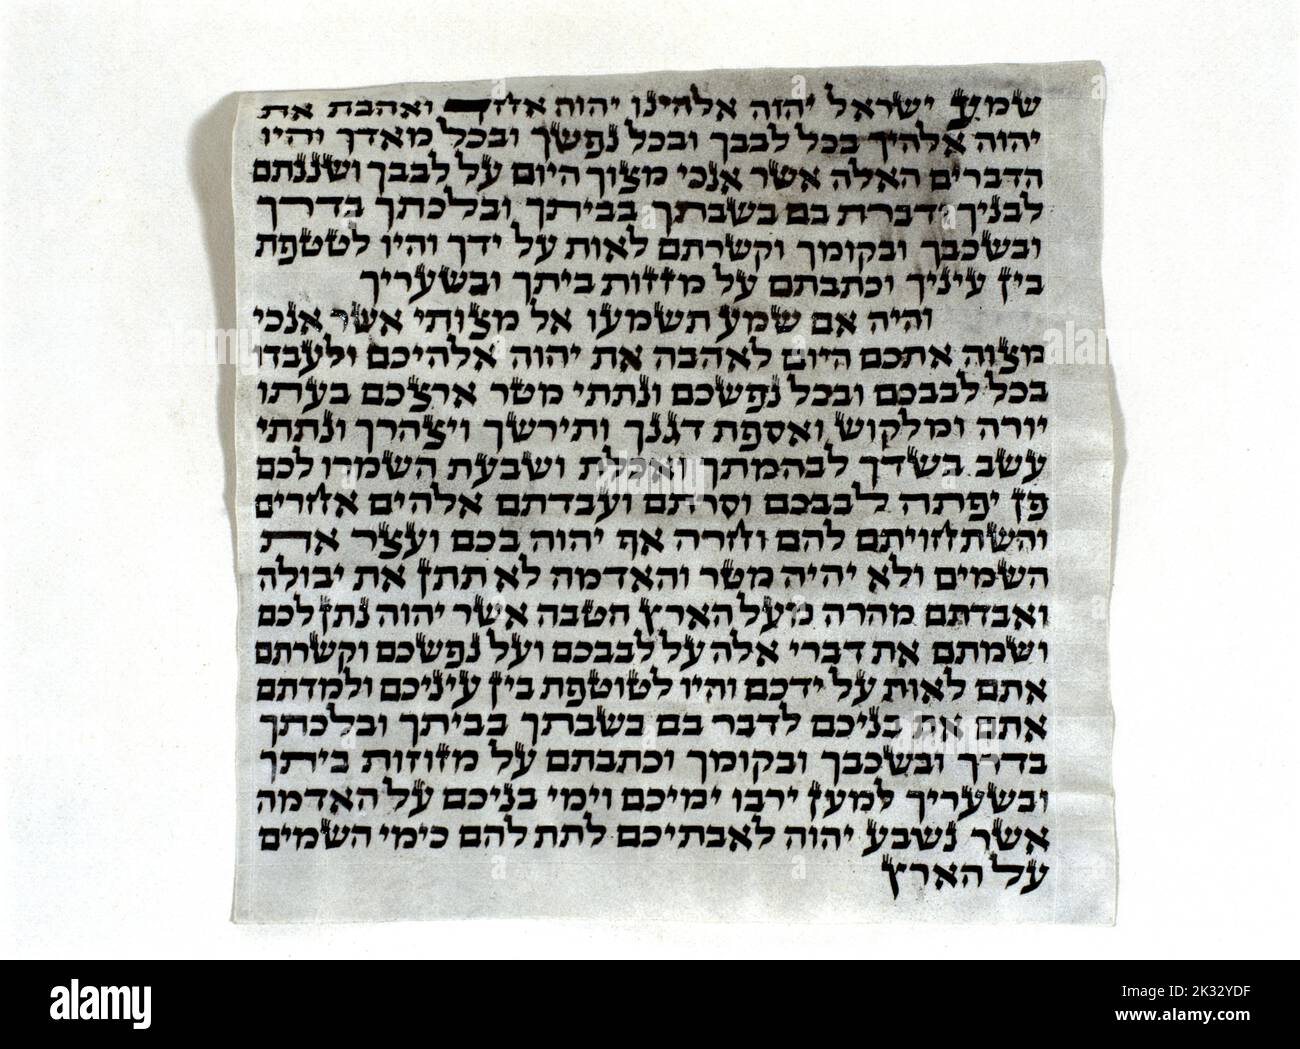 שמע ישראל יהוה אלהינו יהוה אחד ואהבת את
יהוה אלהיך בכל לבבך ובכל נפשך ובכל מאדך והיו
הדברים האלה אשר אנכי מצוך היום על לבבך ושננתם
לבניך ודברת בם בשבתך בביתך ובלכתך בדרך
ובשכבך ובקומך וקשרתם לאות על ידך והיו לטטפת
בין עיניך וכתבתם על מזזות ביתך ובשעריך
והיה אם שמע תשמעו אל מצותי אשר אנכי
מצוה אתכם היום לאהבה את יהוה אלהיכם ולעבדו
בכל לבבכם ובכל נפשכם ונתתי מטר ארצכם בעתו
יורה ומלקוש ואספת דגנך ותירשך ויצהרך ונתתי
עשב בשדך לבהמתך ואכלת ושבעת השמרו לכם
פן יפתה לבבכם וסרתם ועבדתם אלהים אחרים
והשתחויתם להם וחרה אף יהוה בכם ועצר את
השמים ולא יהיה מטר והאדמה לא תתן את יבולה
ואבדתם מהרה מעל הארץ הטבה אשר יהוה נתן לכם
ושמתם את דברי אלה על לבבכם ועל נפשכם וקשרתם
אתם לאות על ידכם והיו לטוטפת בין עיניכם ולמדתם
אתם את בניכם לדבר בם בשבתך בביתך ובלכתך
בדרך ובשכבך ובקומך וכתבתם על מזוזות ביתך
ובשעריך למען ירבו ימיכם וימי בניכם על האדמה
אשר נשבע יהוה לאבתיכם לתת להם כימי השמים
על הארץ
alamy
Image ID: 2K32YDF
www.alamy.com